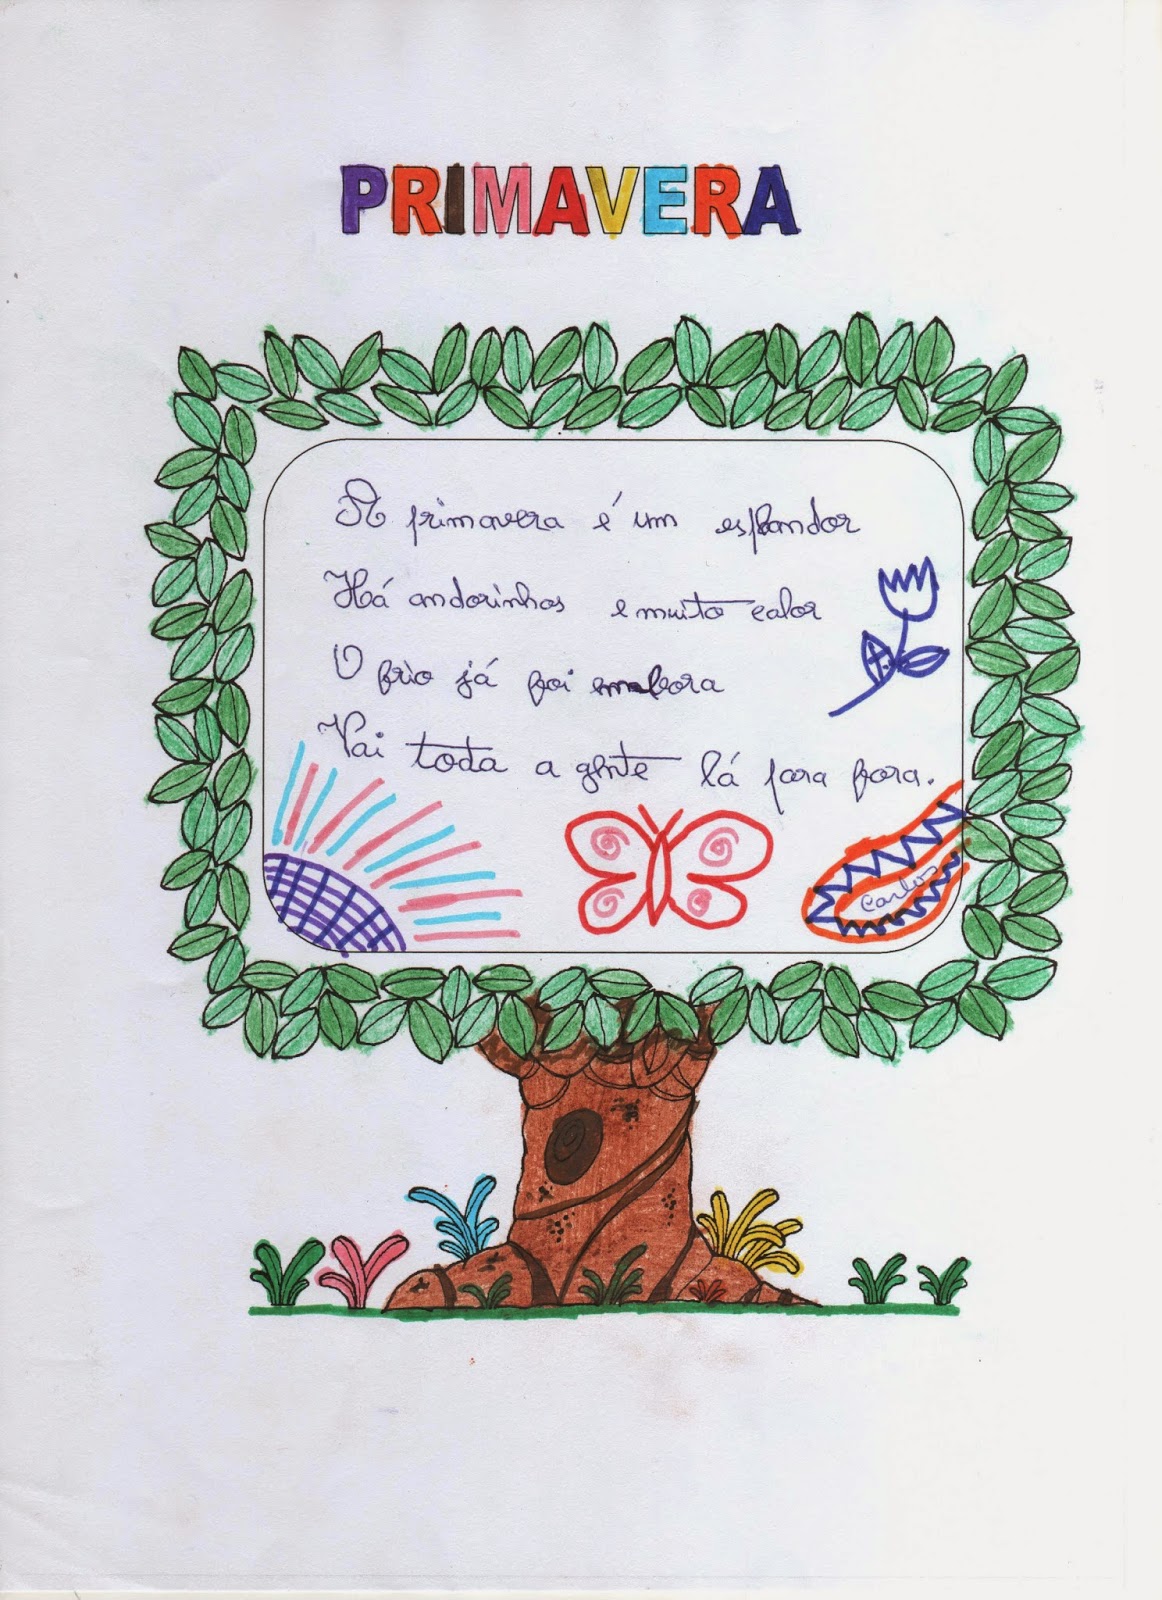 PRIMAVERA
A primavera é um esplandor
Há andorinhas e muito calor
O frio já foi embora
Vai toda a gente lá para fora.
Carlos